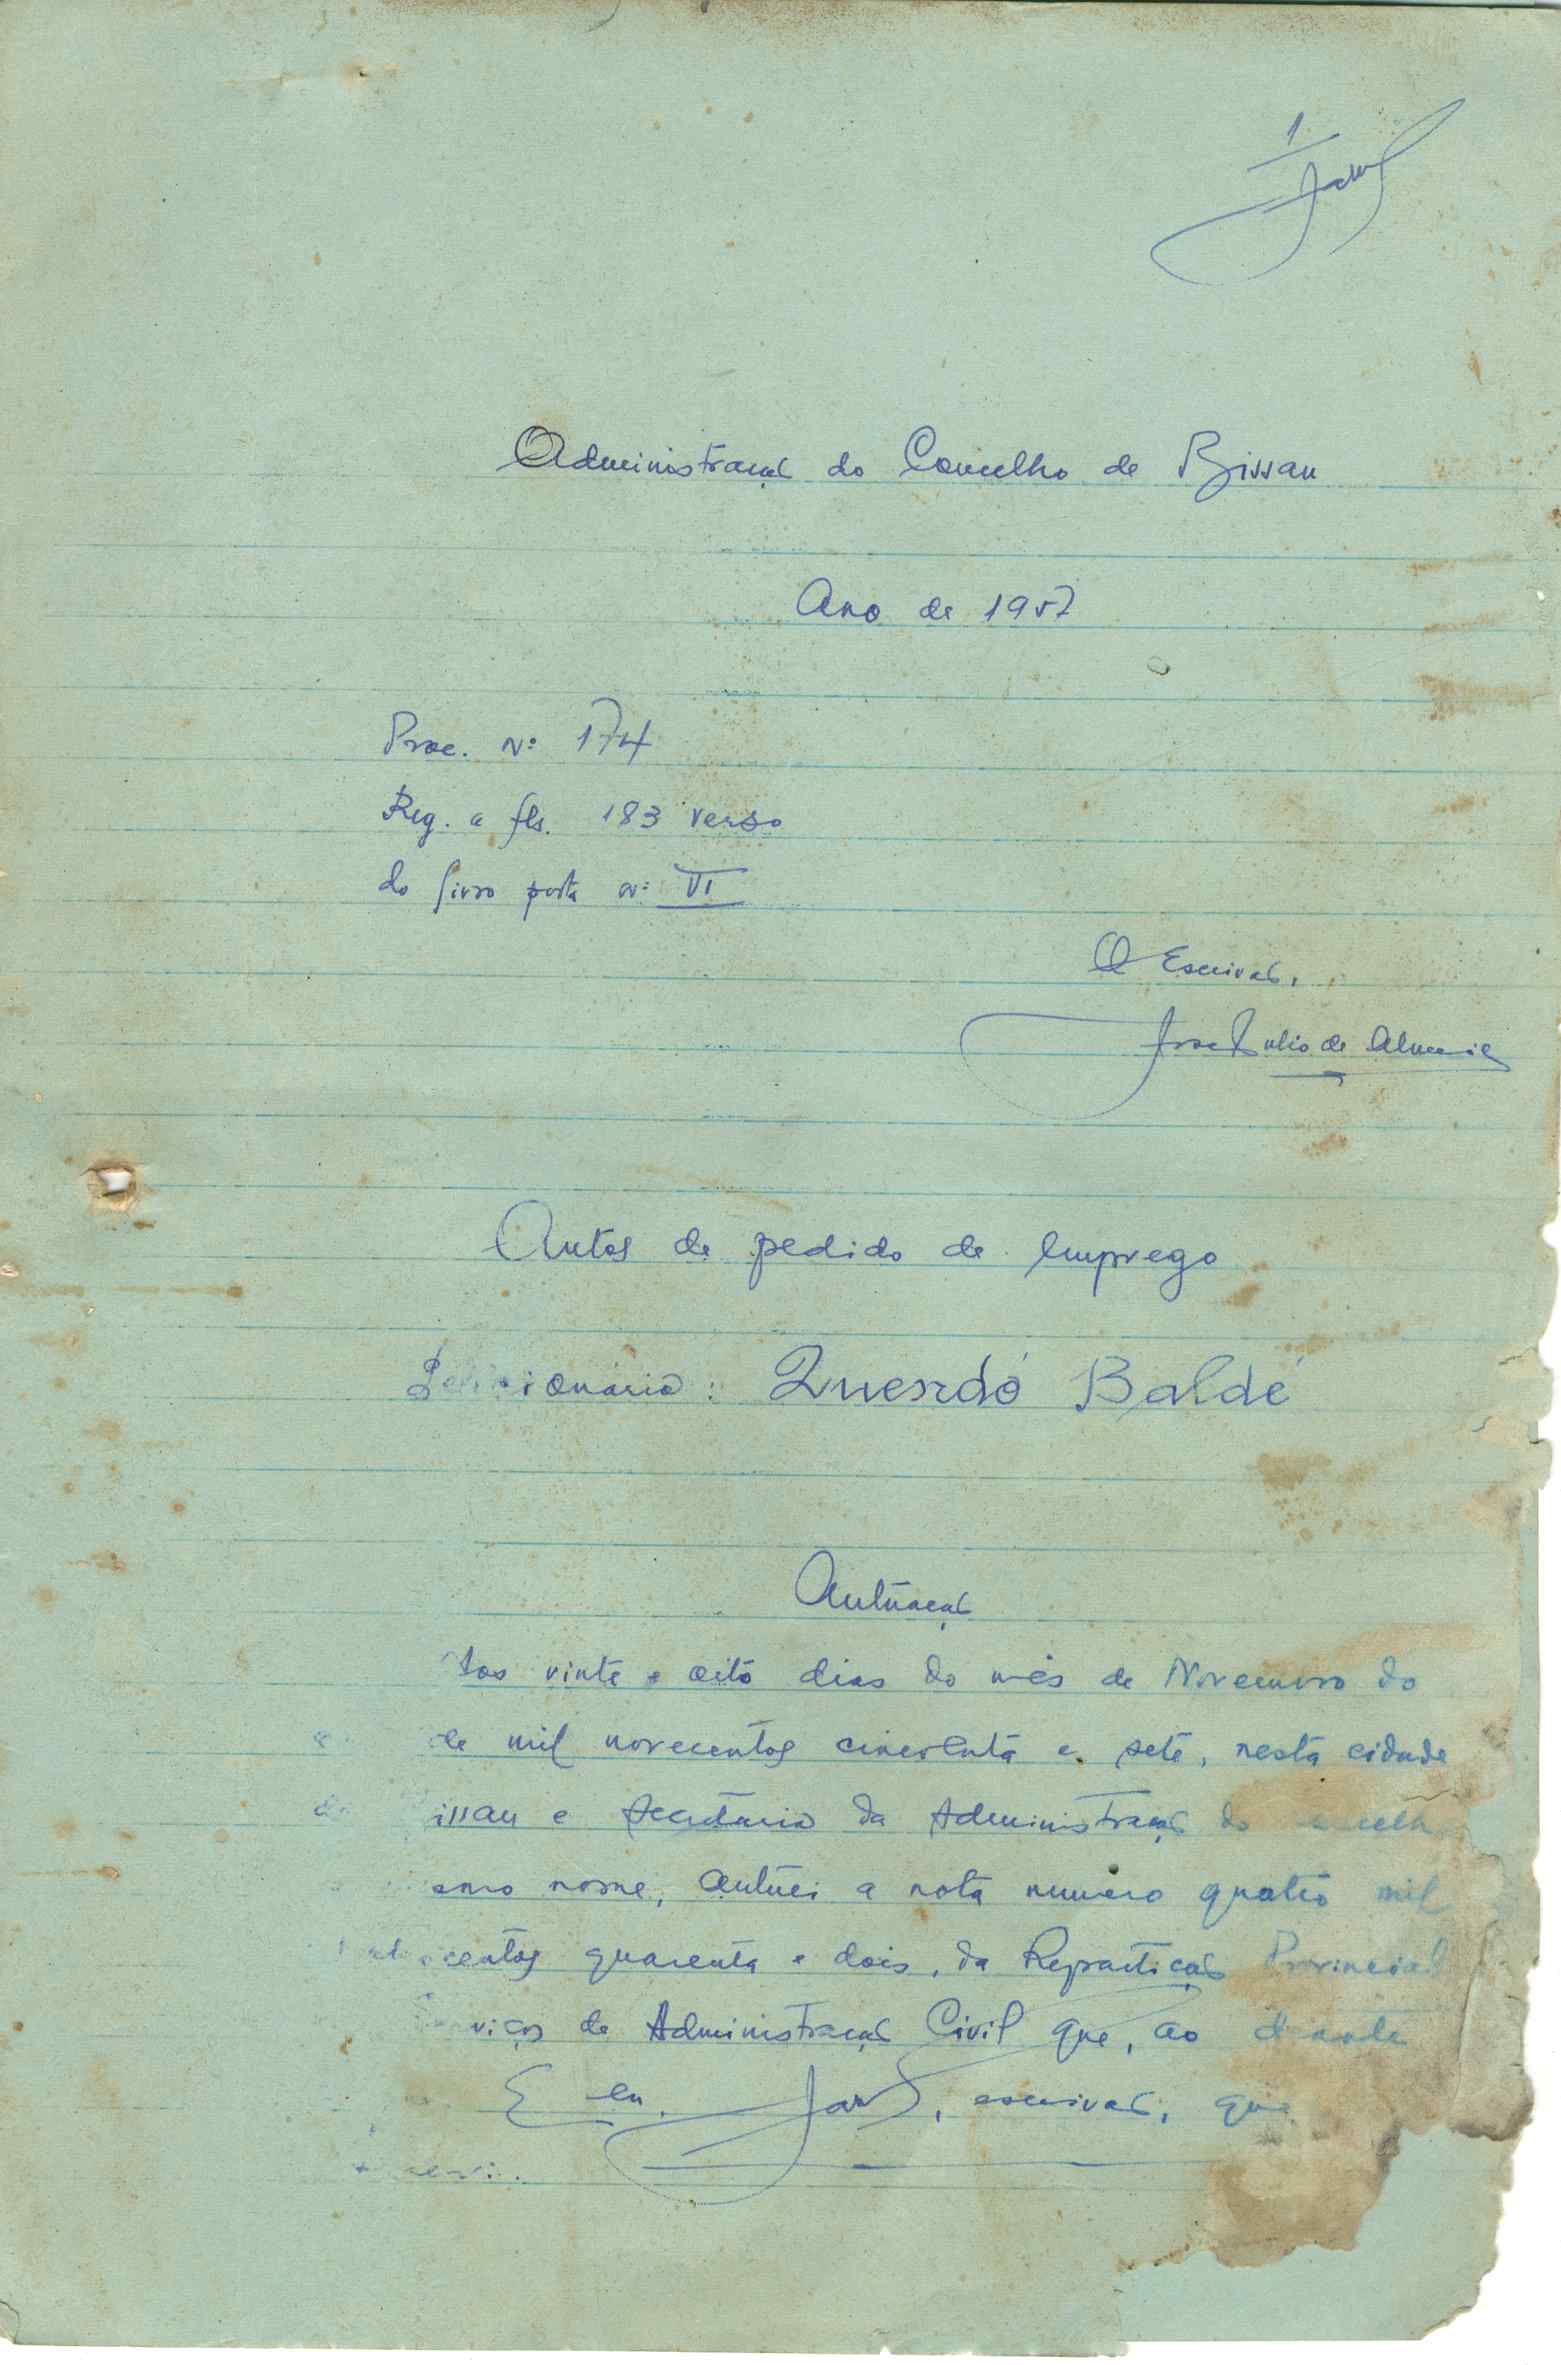 1
Administração do Concelho de Bissau
Ano de 1957
Proc. Nº 174
Reg. a fls. 183 verso
do livro porta nº VI
O Escrivão,
José Julio de Almeida
Autos de pedido de emprego
Peticionário: Querdó Baldé
Autuação
Aos vinte e oito dias do mês de Novembro do
de mil novecentos cincoenta e sete, nesta cidade
de Bissau e secretaria da Administração do concelho
nome, autuei a nota numero quatro mil
centos quarenta e dois, da Repartição Provincial
Serviços de Administração Civil que, ao diante
E eu, escrivão, que